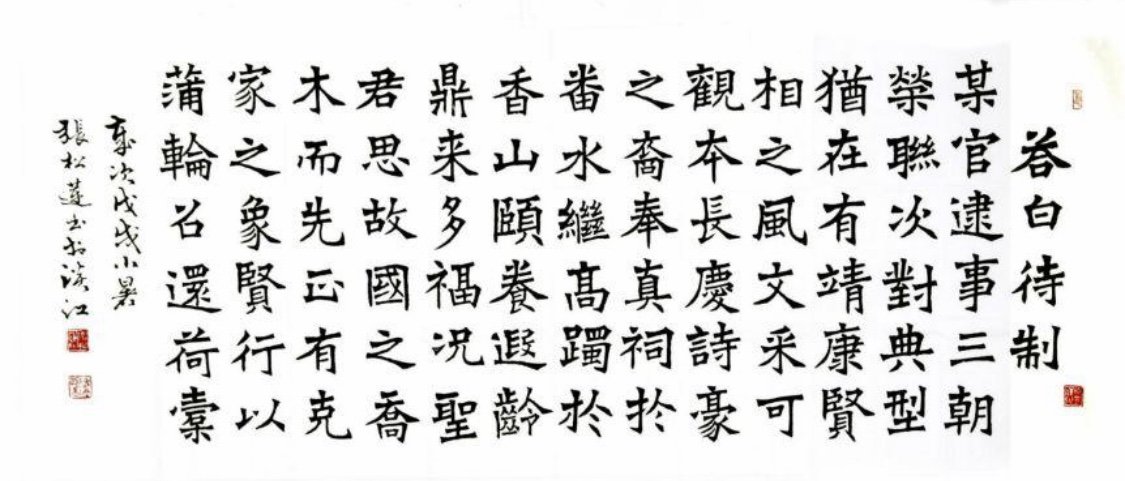 答白待制
某官逮事三朝
榮聯次對典型
猶在有靖康賢
相之風文采可
觀本長慶詩豪
之裔奉真祠於
番水繼高躅於
香山頤養遐齡
鼎来多福況聖
君思故國之喬
木而先正有克
家之象賢行以
蒲輪召還荷橐
歲次戊戌小暑
張松蓮書於濱江